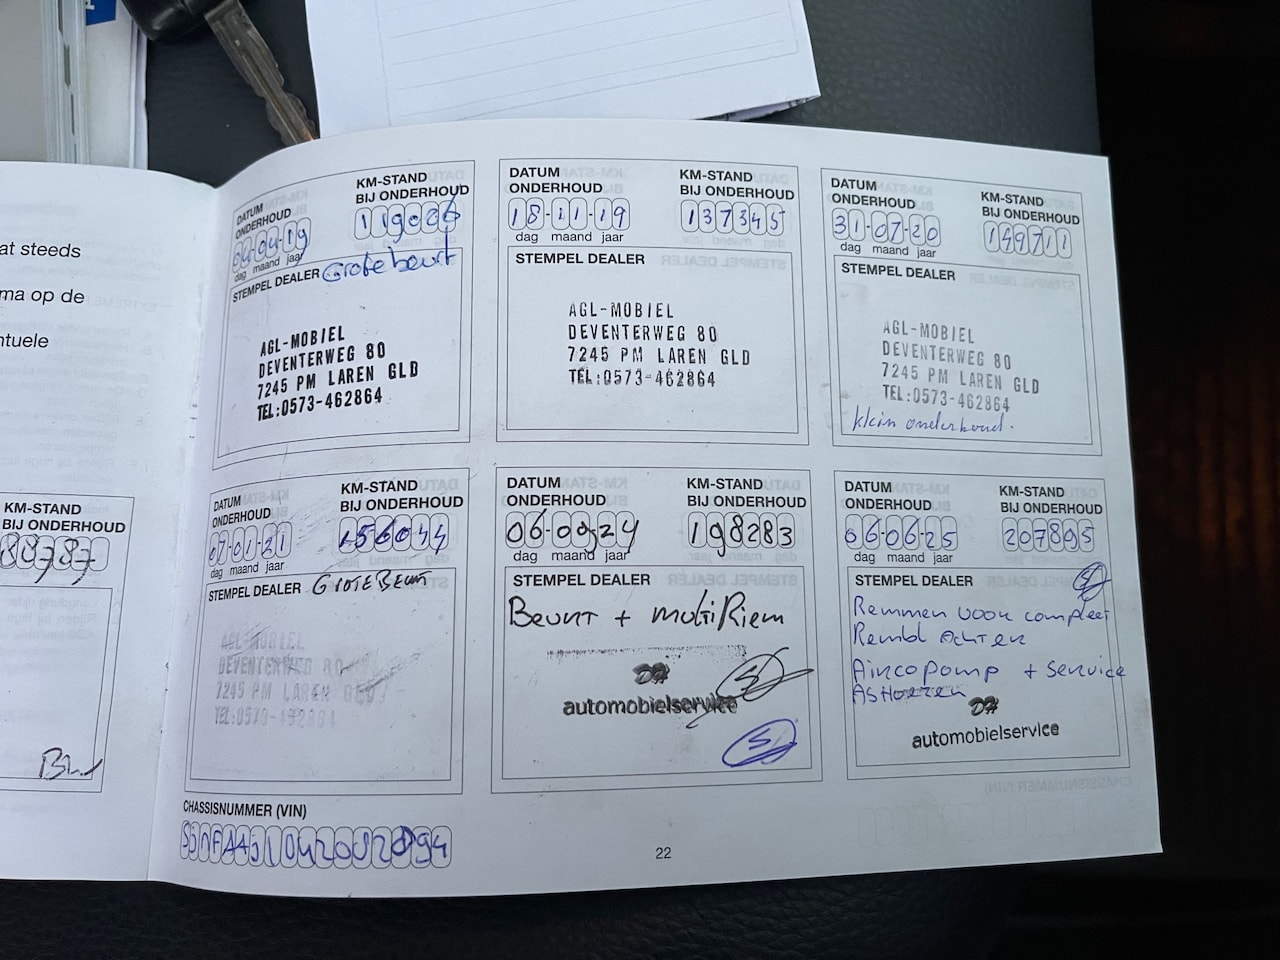 at steeds
ma op de
ntuele
KM-STAND
BIJ ONDERHOUD
DATUM
ONDERHOUD
KM-STAND
BIJ ONDERHOUD
04-04-19
119026
dag maand jaar
STEMPEL DEALER Grote beurt
AGL-MOBIEL
DEVENTERWEG 80
7245 PM LAREN GLD
TEL:0573-462864
DATUM
ONDERHOUD
KM-STAND
BIJ ONDERHOUD
18-11-19
137345
dag maand jaar
STEMPEL DEALER
AGL-MOBIEL
DEVENTERWEG 80
7245 PM LAREN GLD
TEL:0573-462864
DATUM
ONDERHOUD
KM-STAND
BIJ ONDERHOUD
31-07-20
149711
dag maand jaar
STEMPEL DEALER
AGL-MOBIEL
DEVENTERWEG 80
7245 PM LAREN GLD
TEL:0573-462864
klein onderhoud.
DATUM
ONDERHOUD
KM-STAND
BIJ ONDERHOUD
07-01-21
156044
dag maand jaar
STEMPEL DEALER Grote Beurt
AGL-MOBIEL
DEVENTERWEG 80
7245 PM LAREN GLD
TEL:0573-462864
DATUM
ONDERHOUD
KM-STAND
BIJ ONDERHOUD
198283
dag maand jaar
STEMPEL DEALER
Beurt + multiRiem
DH
automobielservice
DATUM
ONDERHOUD
KM-STAND
BIJ ONDERHOUD
06-06-25
207895
dag maand jaar
STEMPEL DEALER
Remmen voor compleet
Rembl Achter
Aircopomp + service
AsHoezen
DH
automobielservice
CHASSISNUMMER (VIN)
22